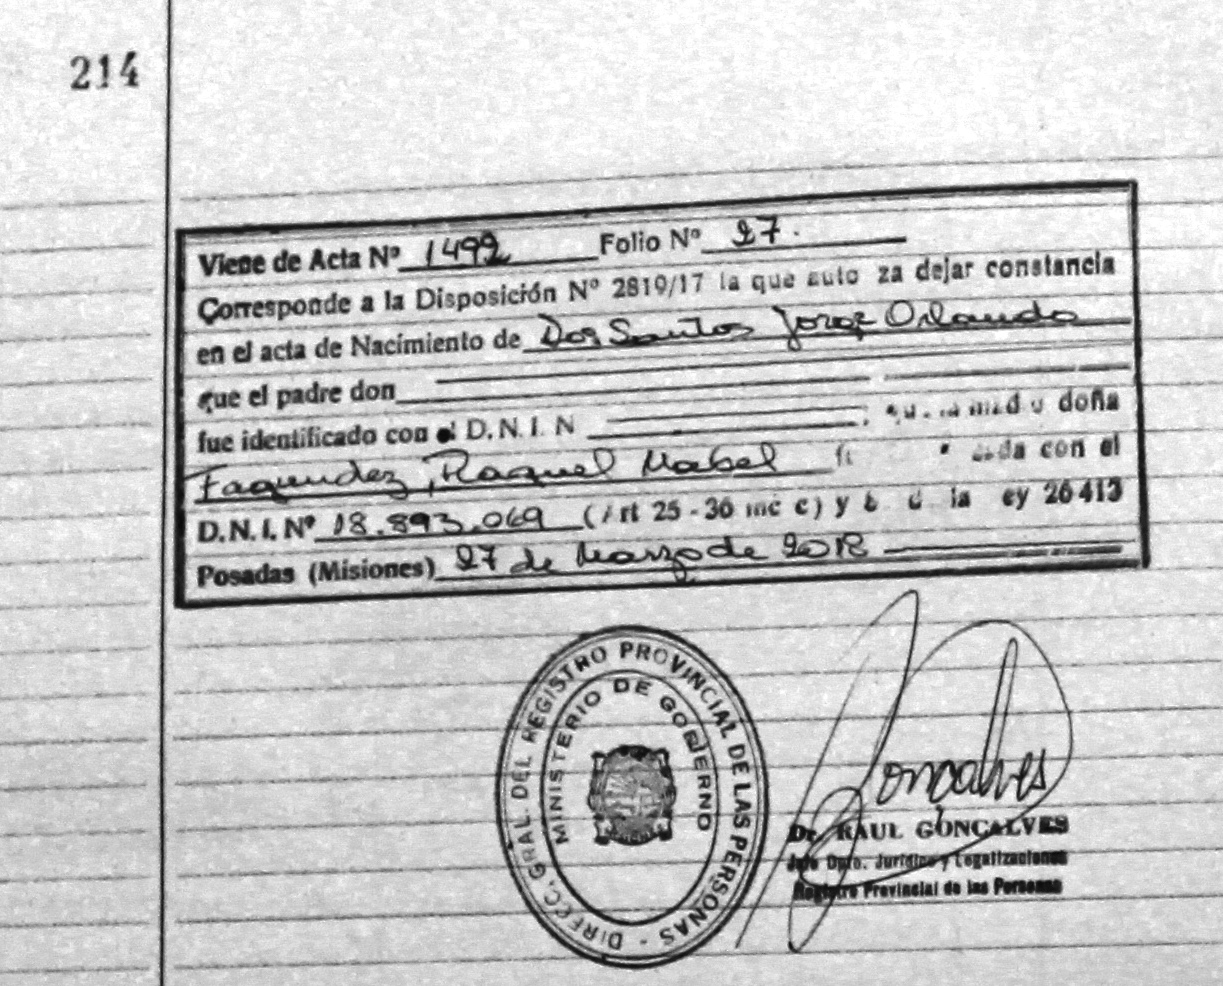 214
Viene de Acta Nº 1499 Folio Nº 27.
Corresponde a la Disposición Nº 2819/17 la que auto za dejar constancia
en el acta de Nacimiento de Dos Santos Jorge Orlando
que el padre don
fue identificado con el D.N.I. N
doña
Faqundez, Raquel Mabel con el
D.N.I. Nº 18.893.069 (Art 25 - 36 inc c) y la ey 26413
Posadas (Misiones) 27 de Marzo de 2018
DIREC. GRAL. DEL REGISTRO PROVINCIAL DE LAS PERSONAS -
MINISTERIO DE GOBIERNO
Gonçalves
Dr. RAUL GONÇALVES
Jefe Dpto. Jurídico y Legalizaciones
Registro Provincial de las Personas